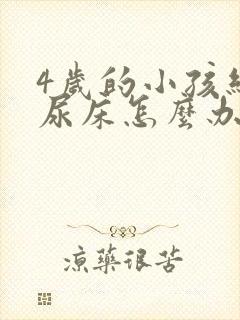 4歲的小孩經
尿床怎麼办
涼藥很苦